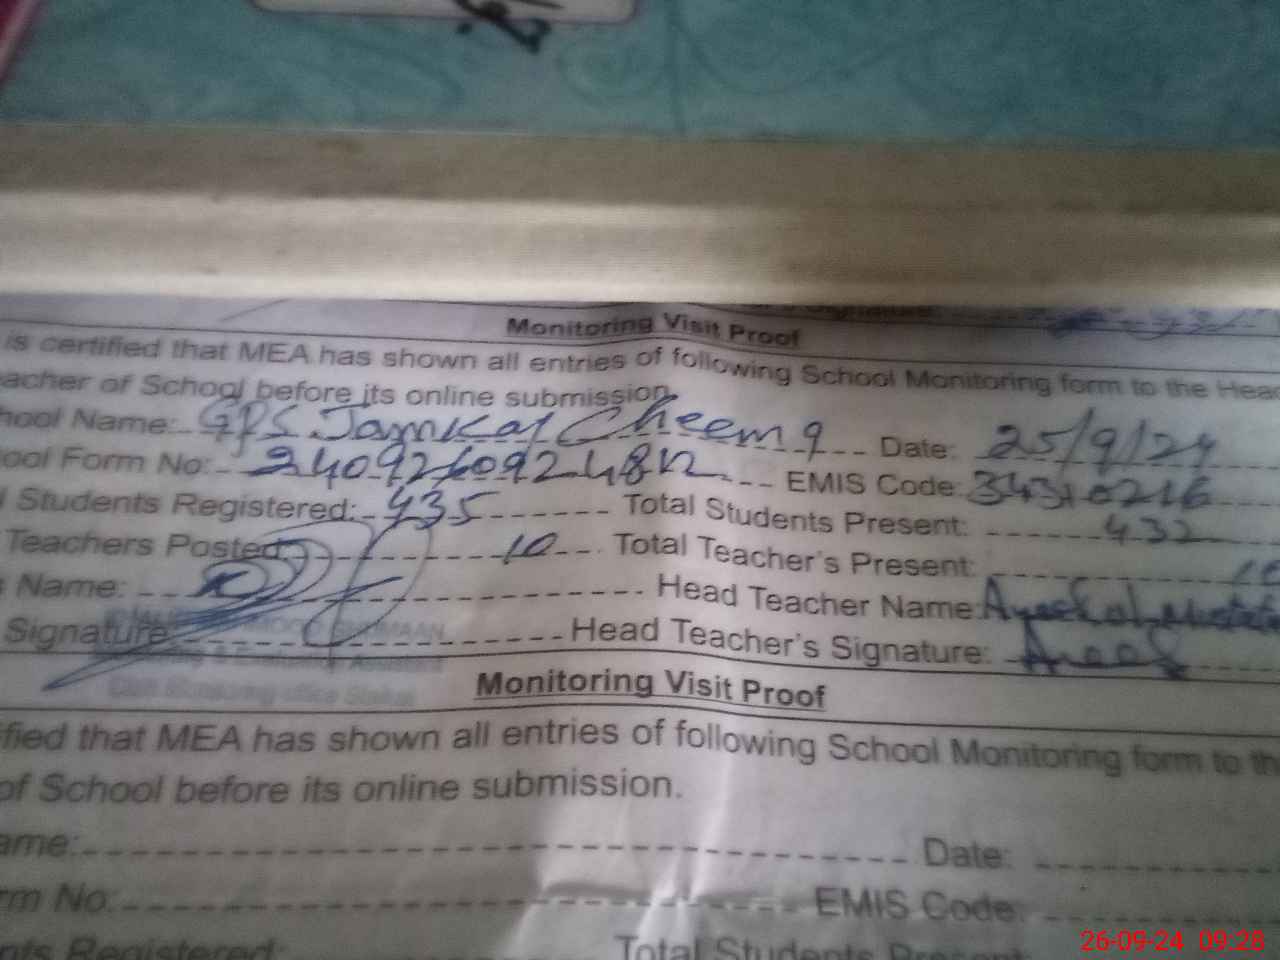 Monitoring Visit Proof
is certified that MEA has shown all entries of following School Monitoring form to the Head
acher of School before its online submission
hool Name: GPS Jamkay Cheema Date: 25/9/24
ool Form No: EMIS Code: 34310216
l Students Registered: 435 Total Students Present: 432
Teachers Posted 10 Total Teacher's Present: 10
s Name: Head Teacher Name:
Signature Head Teacher's Signature:
Monitoring Visit Proof
fied that MEA has shown all entries of following School Monitoring form to th
of School before its online submission.
ame: Date:
rm No: EMIS Code:
nts Registered: Total Students Present:
26-09-24 09:28